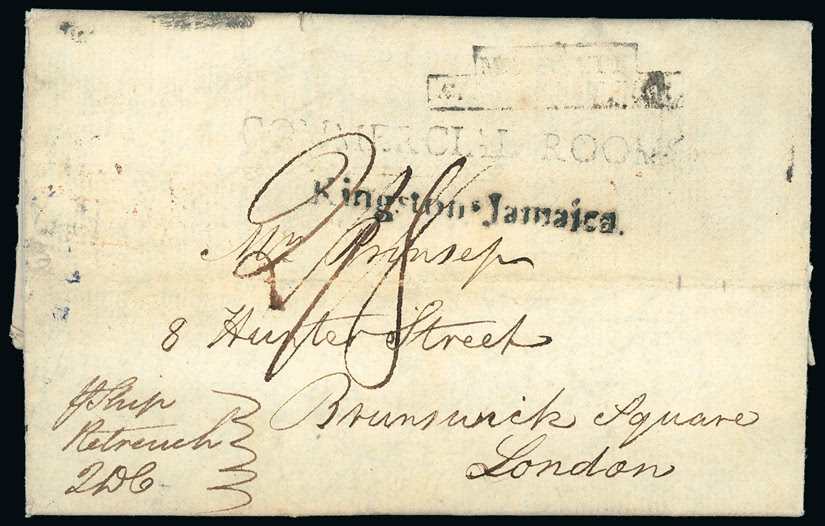 COMMERCIAL ROOMS
Kingston·Jamaica.
2/8
Prinsep
8 Hunter Street
Brunswick Square
London
Ship
Retrench